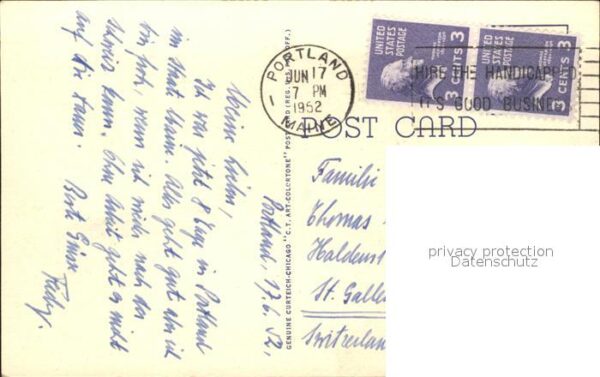 Portland, 17.6.52.
Meine Lieben,
Ich war jetzt 8 Tage in Portland
im Staate Maine. Alles geht gut aber ich
bin froh, wenn ich wieder nach der
kann. Ohne Arbeit geht es nicht
auf die Dauer.
GENUINE CURTEICH-CHICAGO "C.T. ART-COLORTONE" POST CARD (REG. U.S. PAT. OFF.)
PORTLAND
JUN 17
7 PM
1952
MAINE
HIRE THE HANDICAPPED
IT'S GOOD BUSINESS
UNITED STATES POSTAGE
3 CENTS 3
UNITED STATES POSTAGE
3 CENTS 3
POST CARD
Familie
Thomas
Haldenst
St. Galle
Switzerlan
privacy protection
Datenschutz